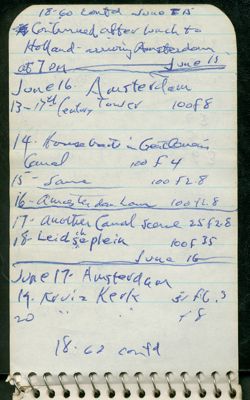 18-60 contd June 15
Continued after lunch to
Holland - Amsterdam
at 7 PM June 15
June 16. Amsterdam
13- 17th Century Tower 100 f 8
14. House boats in Gentleman's
Canal 100 f 4
15- Same 100 f 2.8
16- 100 f 2.8
17- Another Canal scene 25 f 2.8
18- Leidseplein 100 f 35
June 16
June 17- Amsterdam
19- Kerk f 6.3
20 " " " f 8
18-62 contd